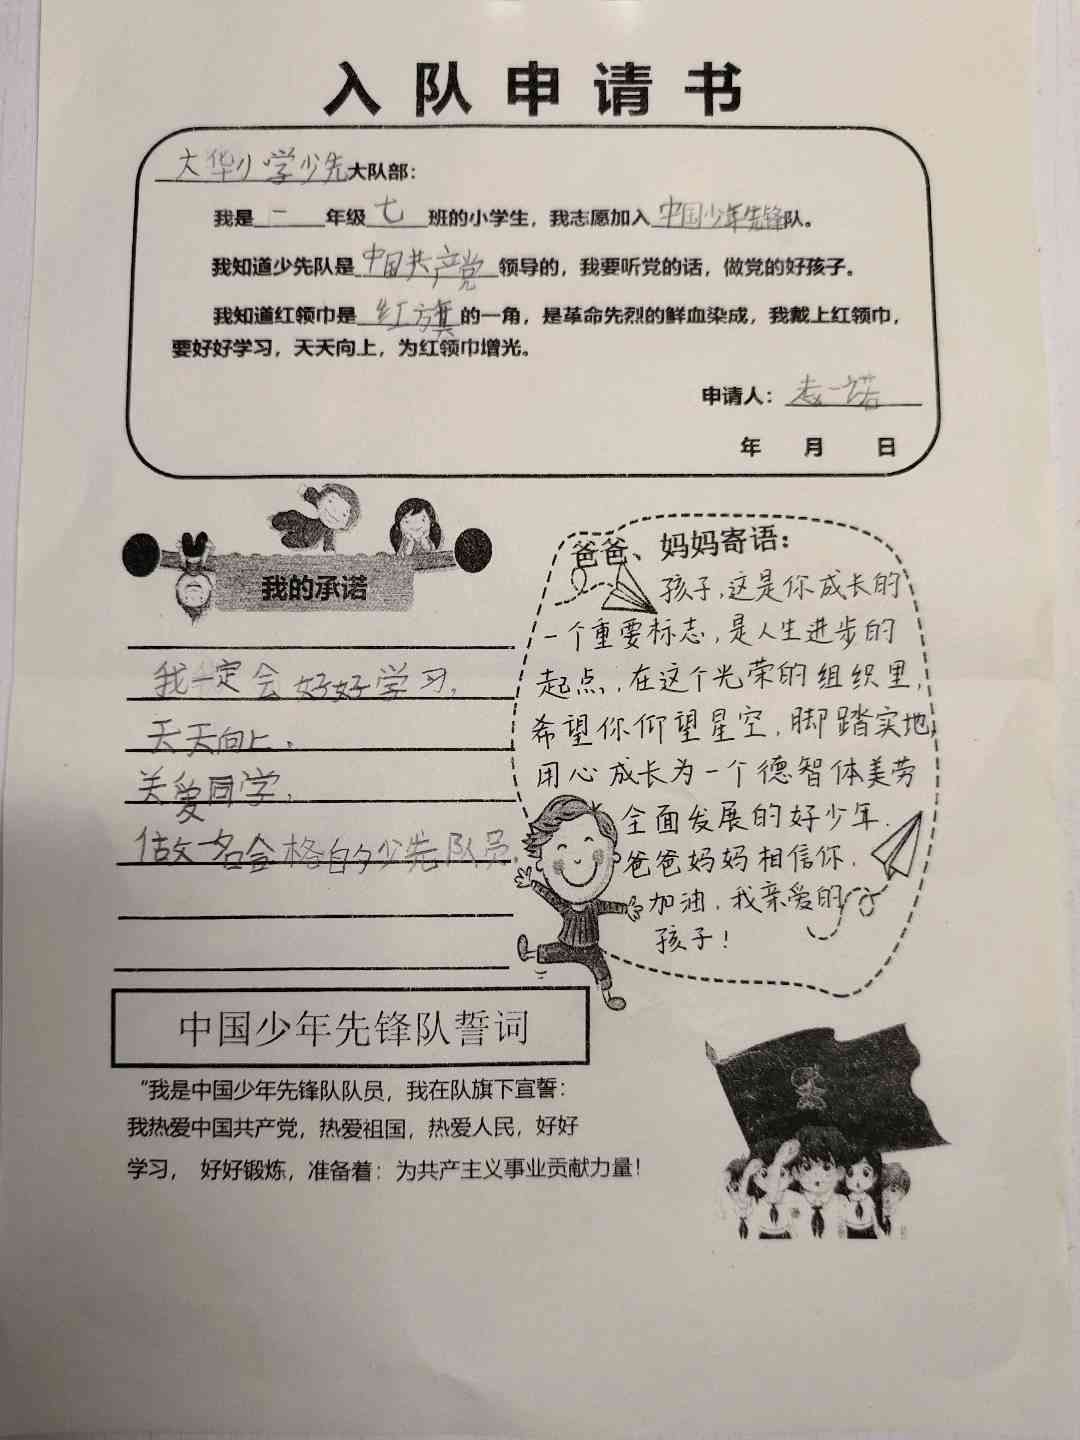 入队申请书
大华小学少先大队部：
我是一年级七班的小学生，我志愿加入中国少年先锋队。
我知道少先队是中国共产党领导的，我要听党的话，做党的好孩子。
我知道红领巾是红旗的一角，是革命先烈的鲜血染成，我戴上红领巾，
要好好学习，天天向上，为红领巾增光。
申请人：一诺
年 月 日
我的承诺
我一定会好好学习，
天天向上，
关爱同学，
做一名合格的少先队员。
爸爸、妈妈寄语：
孩子，这是你成长的
一个重要标志，是人生进步的
起点，在这个光荣的组织里，
希望你仰望星空，脚踏实地
用心成长为一个德智体美劳
全面发展的好少年．
爸爸妈妈相信你．
加油．我亲爱的
孩子！
中国少年先锋队誓词
“我是中国少年先锋队队员，我在队旗下宣誓：
我热爱中国共产党，热爱祖国，热爱人民，好好
学习， 好好锻炼，准备着：为共产主义事业贡献力量！